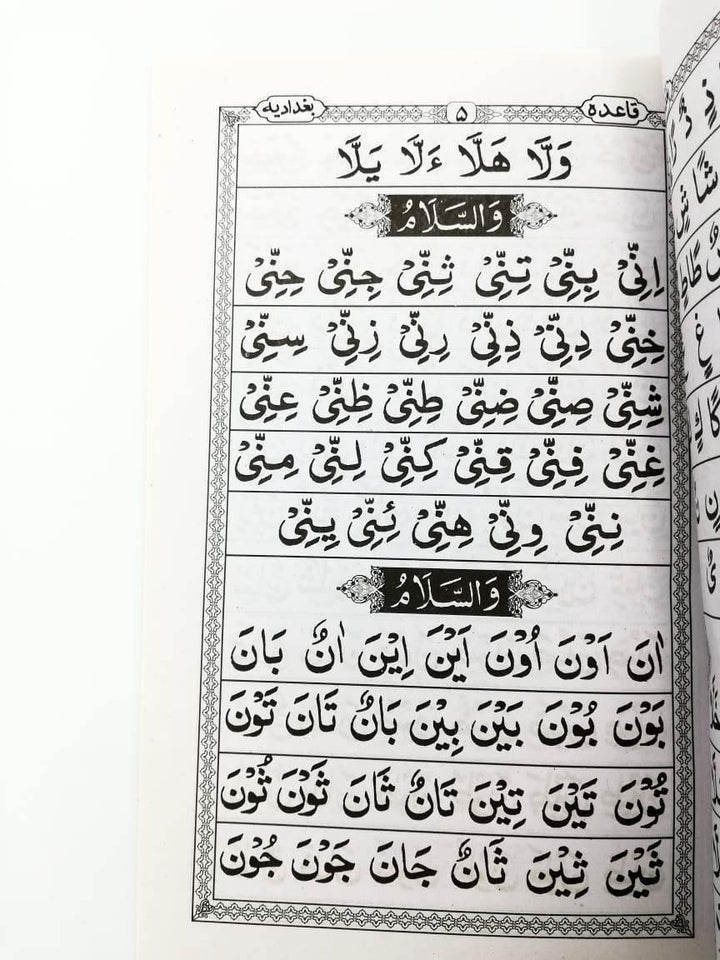 قاعده ۵ بغداديه
وَلَّا هَلَّا ءَلَّا يَلَّا
وَالسَّلَامُ
اِنِّیْ بِنِّیْ تِنِّیْ ثِنِّیْ جِنِّیْ حِنِّیْ
خِنِّیْ دِنِّیْ ذِنِّیْ رِنِّیْ زِنِّیْ سِنِّیْ
شِنِّیْ صِنِّیْ ضِنِّیْ طِنِّیْ ظِنِّیْ عِنِّیْ
غِنِّیْ فِنِّیْ قِنِّیْ كِنِّیْ لِنِّیْ مِنِّیْ
نِنِّیْ وِنِّیْ هِنِّیْ ئِنِّیْ يِنِّیْ
وَالسَّلَامُ
اٰنَ اَوْنَ اُوْنَ اَيْنَ اِيْنَ اٰنٌ بَانَ
بَوْنَ بُوْنَ بَيْنَ بِيْنَ بَانٌ تَانَ تَوْنَ
تُوْنَ تَيْنَ تِيْنَ تَانٌ ثَانَ ثَوْنَ ثُوْنَ
ثَيْنَ ثِيْنَ ثَانٌ جَانَ جَوْنَ جُوْنَ